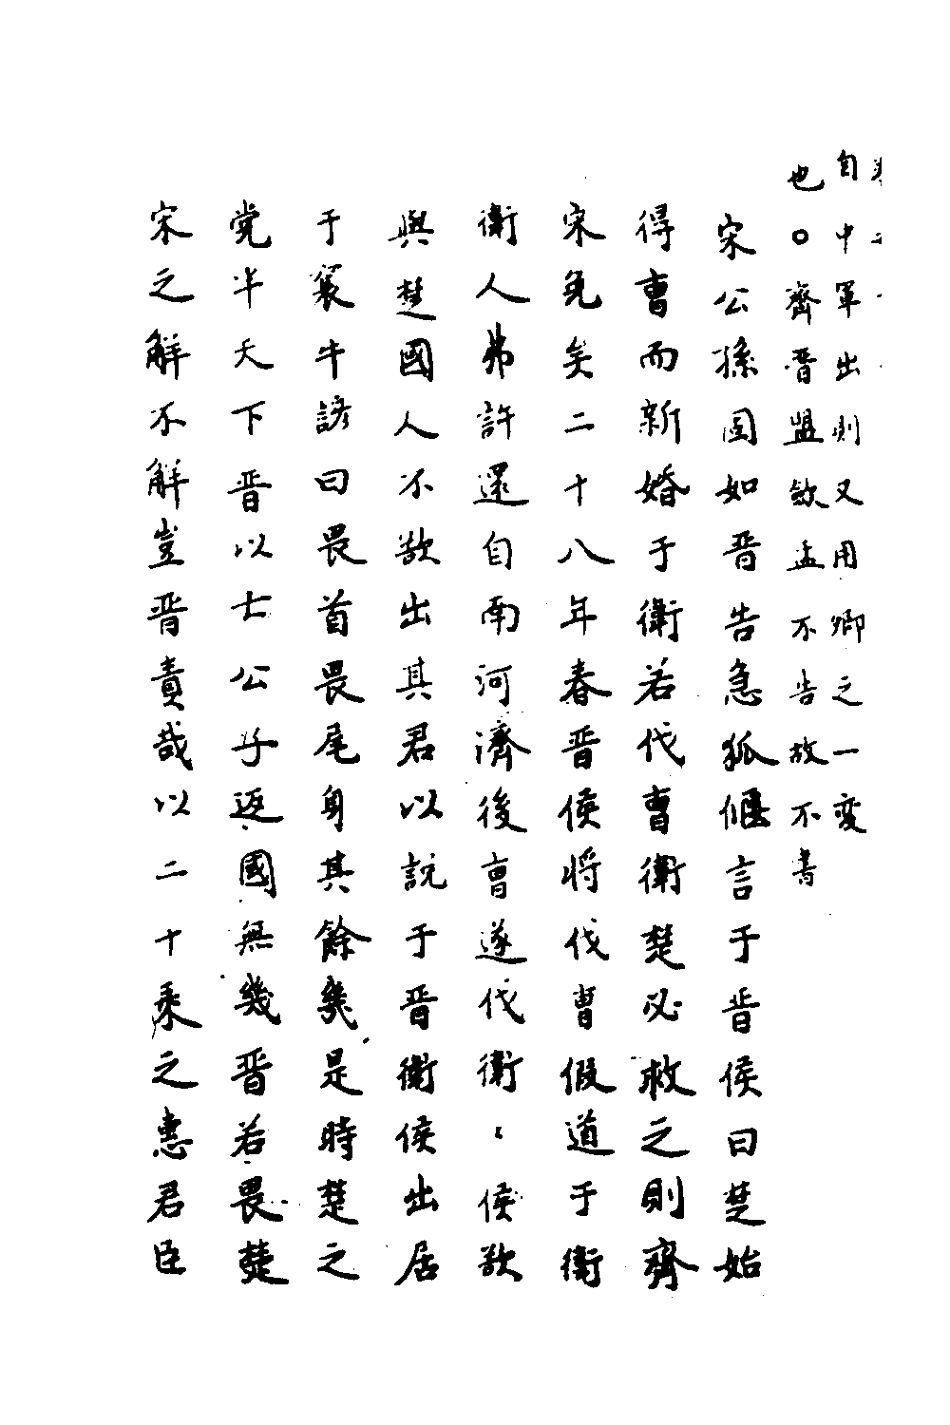 自中軍出則又用卿之一変
也○齊晋盟斂盂不告故不書
宋公孫固如晋告急狐偃言于晋侯曰楚始
得曹而新婚于衛若伐曹衛楚必救之則齊
宋免矣二十八年春晋侯将伐曹假道于衛
衛人弗許還自南河濟後曹遂伐衛〻侯欲
與楚國人不欲出其君以説于晋衛侯出居
于襄牛諺曰畏首畏尾身其餘幾是時楚之
党半天下晋以士公子返國無幾晋若畏楚
宋之解不解豈晋責哉以二十乘之恵君臣